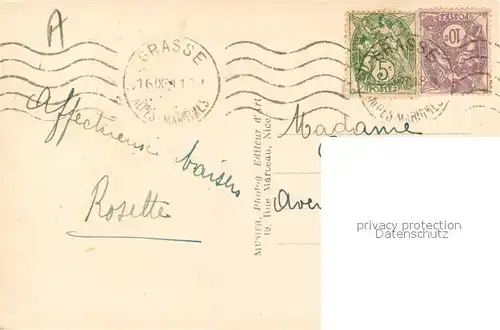 A
GRASSE
ALPES-MARITIMES
5c
POSTES
10
POSTES
GRASSE
ALPES-MARITIMES
Affectueux baisers
Rosette
MUSIER, Photog. Editeur d'Art
19, Rue Marceau, Nice
Madame
Ave
privacy protection
Datenschutz